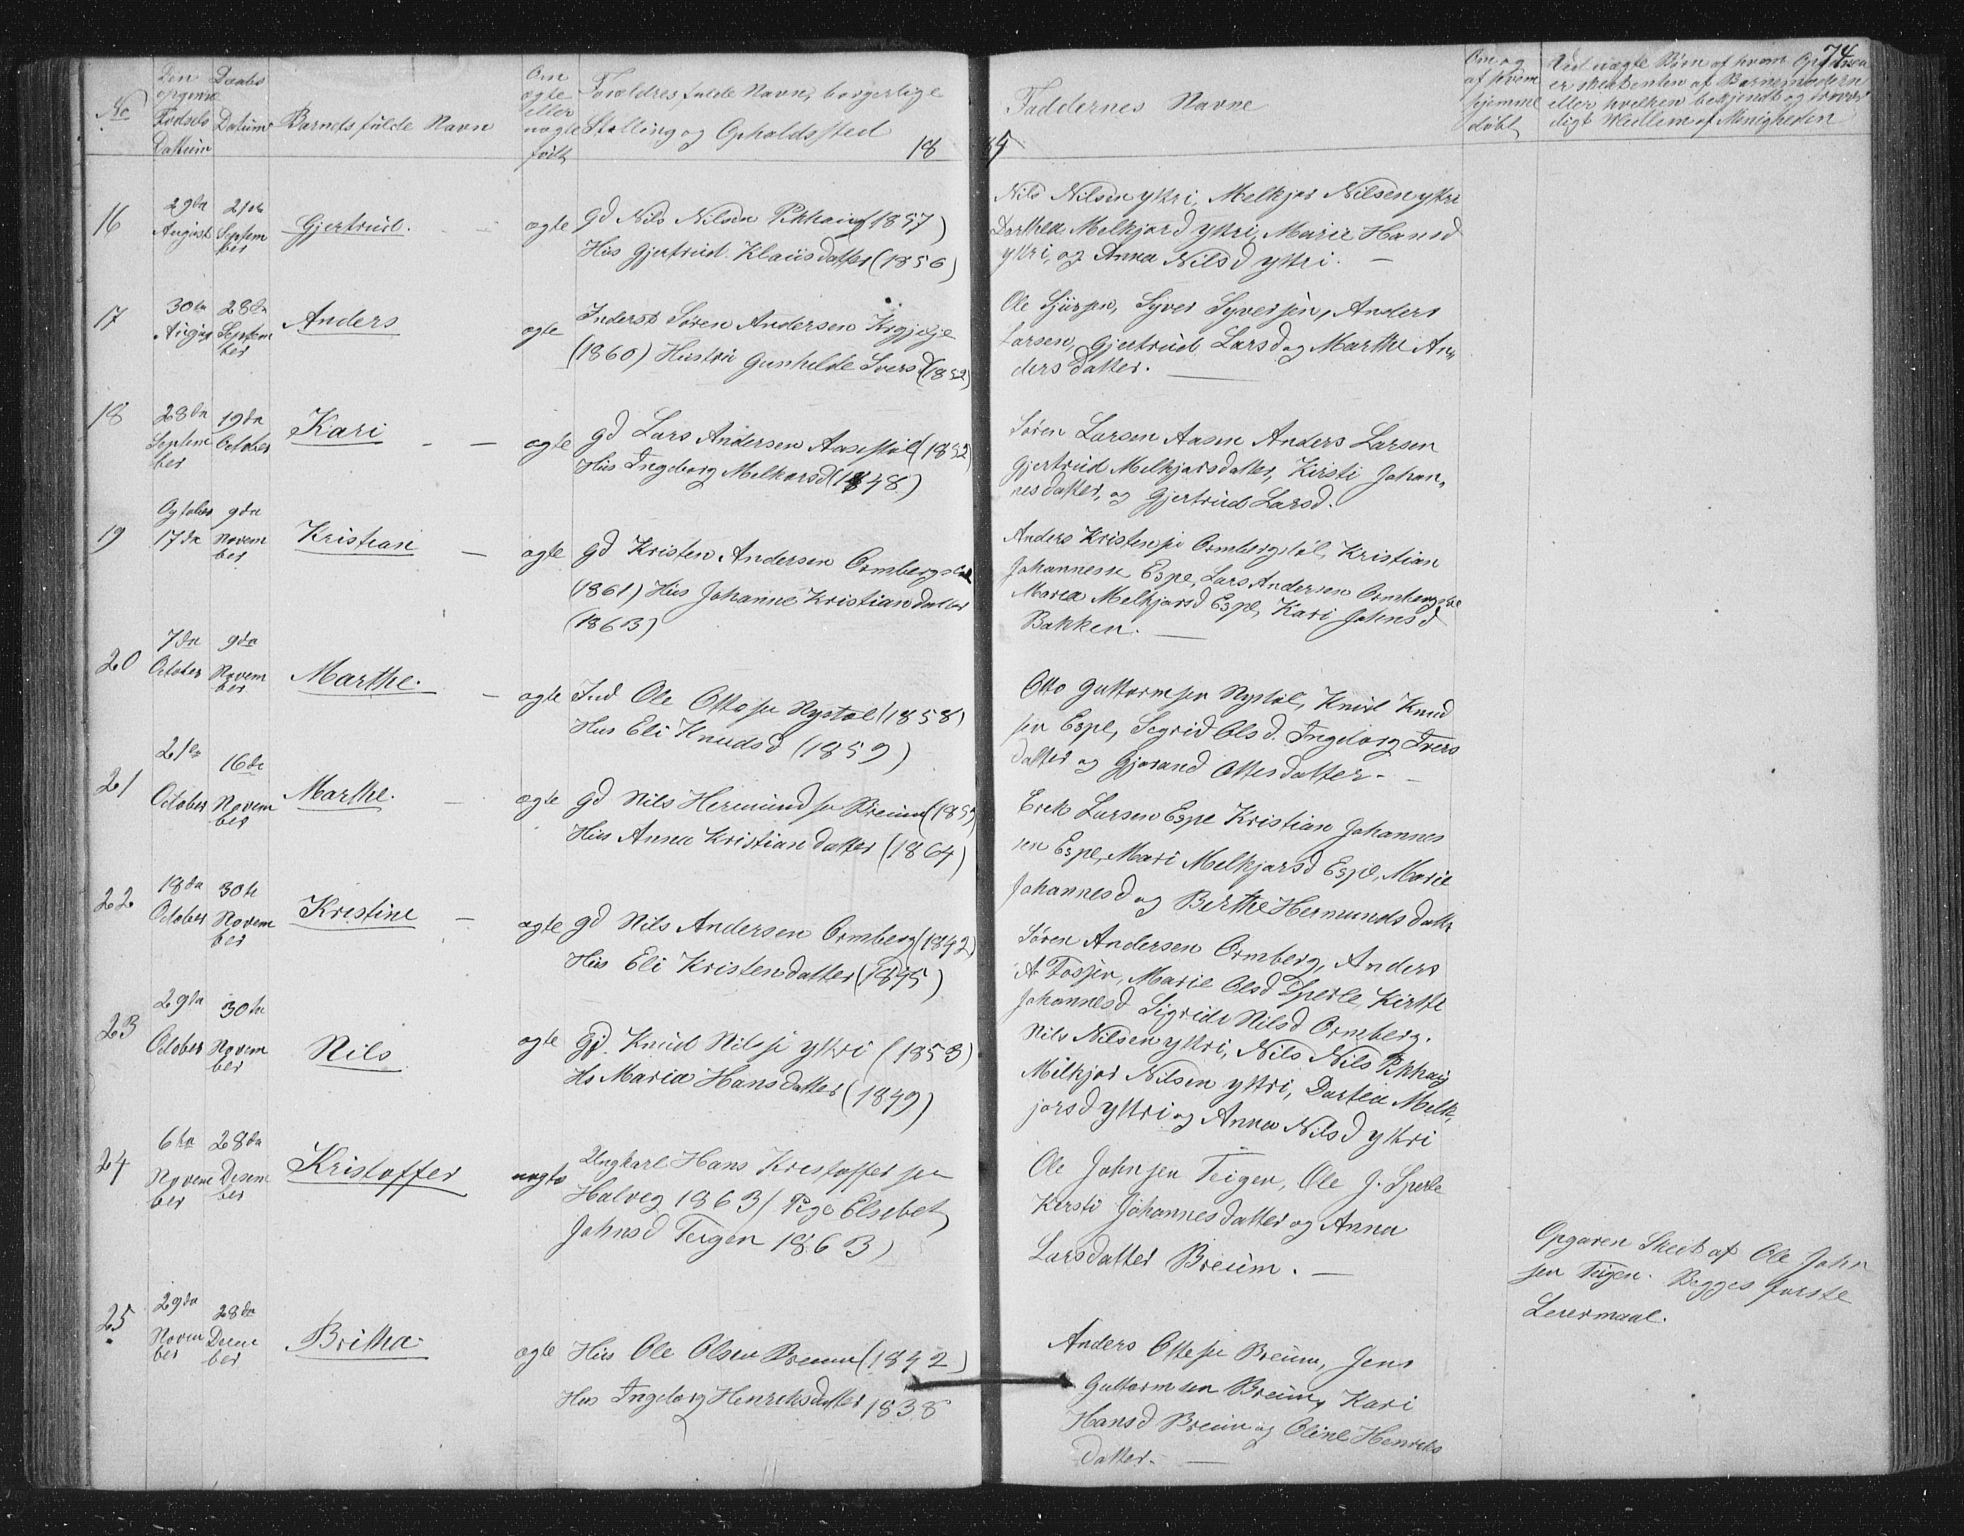 74
No
Den opgivne Fødsels Dattum
Daabs Datum
Barnets fulde Navn
Om ægte eller uægte født
Forældres fulde Navn, borgerlige
Stilling og Opholdssted
18 85
Faddernes Navne
Om og af hvem hjemme døbt
Ved uægte Børn af hvem Opgaven
er skeet enten af Barnemoderen
eller hvilken bekjendt og trovær
digt Medlem af Menigheden
16
29da August
21de September
Gjertrud.
ægte
Gd Nils Nilsen (1857)
Hus Gjertrud Klausdatter (1856)
Nils Nilsen yttri, Melkjor Nilsen yttri
Dorthea Melkjorsd yttri, Marie Hansd
yttri, og Anna Nilsd yttri. —
17
30te August
28da September
Anders
ægte
Inderst Søren Andersen
(1860) Hustru Gunhilde Iversd (1852)
Ole Sjursen, Syver Syversen, Anders
Larsen, Gjertrud Larsd og Marthe An„
dersdatter. —
18
28da September
19da October
Kari
ægte
Gd Lars Andersen Aasestøl (1852)
Hus Ingeborg Melkorsd (1848.)
Søren Larsen Aasen Anders Larsen
Gjertrud Melkjorsdatter, Kirsti Johan„
nesdatter, og Gjertrud Larsd.
19
October 17da
9da November
Kristian
ægte
Gd Kristen Andersen Ormbergstøl
(1861) Hus Johanne Kristiansdatter
(1863)
Anders Kristense Ormbergstøl, Kristian
Johannesse Espe, Lars Andersen Ormbergstøl
Maria Melkjorsd Espe, Kari Johnsd
Bakken. —
20
7da October
9da November
Marthe.
ægte
Ind Ole Ottose Nystøl (1858)
Hus Eli Knudsd (1859)
Otto Guttormsen Nystøl, Knud Knud
sen Espe, Sigrid Olsd. Ingeborg Ivers
datter og Gjorand Ottesdatter. —
21
21de October
16de November
Marthe.
ægte
Gd Nils Hermundse Breum (1859
Hus Anna Kristiansdatter (1864)
Erik Larsen Espe Kristian Johannes
sen Espe, Mari Melkjorsd Espe, Marie
Johannesd og Berthe Hermundsdatter
22
18da October
30te November
Kristine
ægte
Gd Nils Andersen Ormberg (1842)
Hus Eli Kristensdatter (1845)
Søren Andersen Ormberg, Anders
A Fossen, Marie Olsd Sperle, Kirsti
Johannesd Sigride Nilsd Ormberg.
23
29da October
30te November
Nils
ægte
Gd. Knud Nilsse yttri (1853)
Hs Maria Hansdatter (1849)
Nils Nilsen yttri, Nils Nils
Milkjor Nilsen yttri, Dortea Melk„
jorsd yttri og Anna Nilsd yttri
24
6ta November
28da Desember
Kristoffer
uægte
Ungkarl Hans Kristofferse
Halveg 1863/ Pige Elsebet
Johnsd Teigen 1863)
Ole Johnsen Teigen, Ole J. Sperle
Kersti Johannesdatter og Anna
Larsdatter Breum. —
Opgaven Skeet af Ole John
sen Teigen. Begges første
Leiermaal.
25
29da November
28da December
Britha.
ægte
Hus Ole Olsen Breum (1842)
Hus Ingeborg Henriksdatter 1838
Anders Ottese Breum, Jens
Guttormsen Breum, Kari
Hansd Breum og Oline Henriks
datter. —